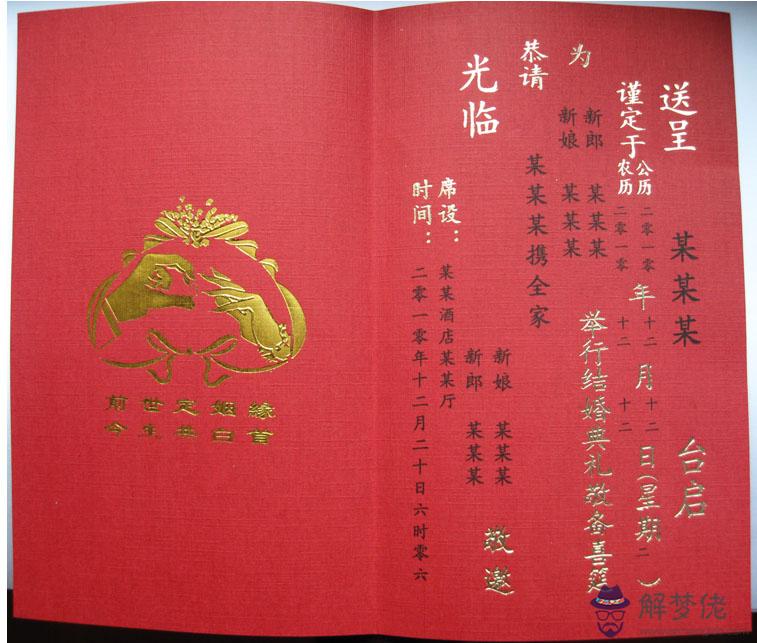 送呈 某某某 台启
谨定于 公历 二零一零 年 十二 月 十二 日(星期二)
农历 二零一零 十二 十二
为 新郎 某某某
新娘 某某某
举行结婚典礼敬备喜筵
恭请 某某某携全家
光临
新娘 某某某
新郎 某某某
敬邀
席设：某某酒店某某厅
时间：二零一零年十二月二十日六时零六
前世定姻緣
今生共白首
解梦佬